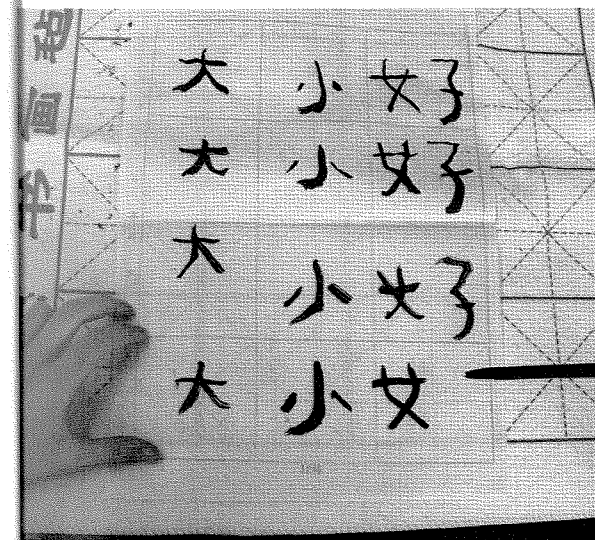 大小好
大小好
大小好
大小女